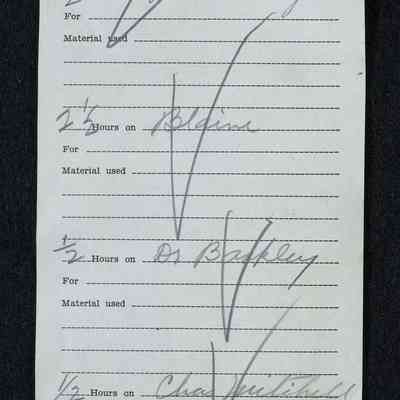 For
Material used
2 1/2 Hours on Blaine
For
Material used
1/2 Hours on Dr Barkley
For
Material used
1/2 Hours on Chas Mitchell